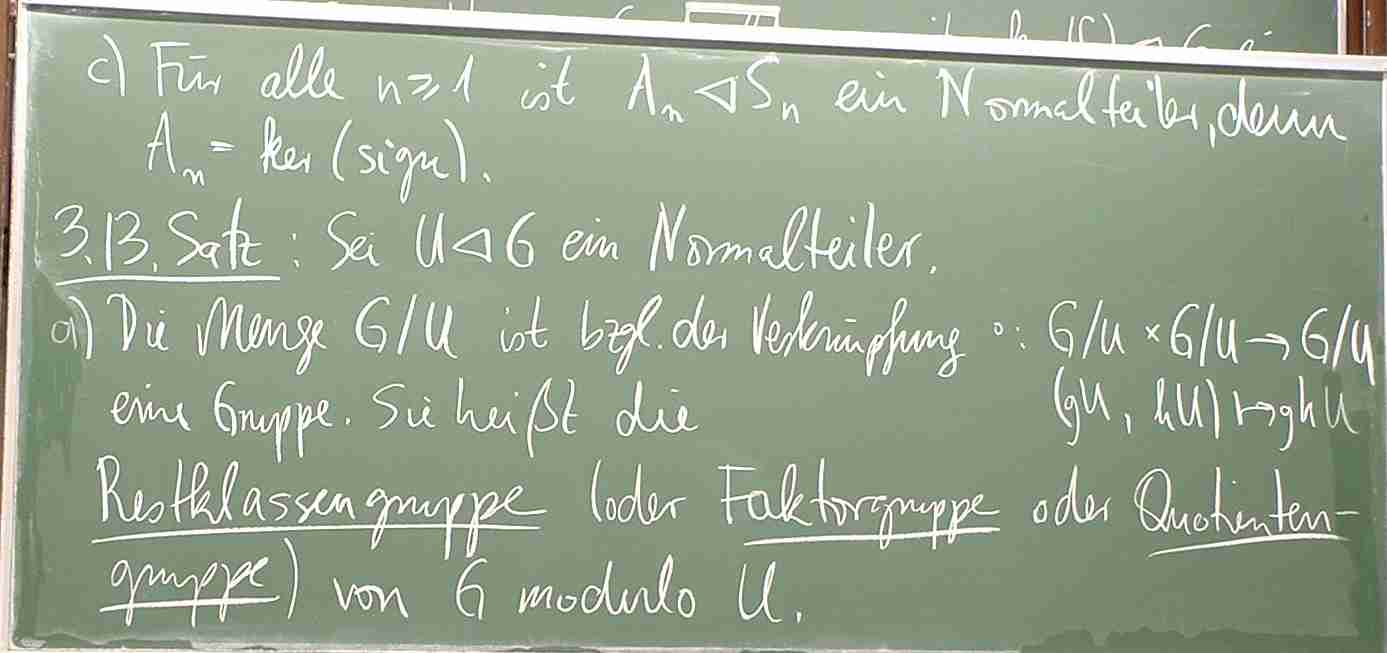 c) Für alle n ≥ 1 ist Aₙ ◁ Sₙ ein Normalteiler, denn
Aₙ = ker (sign).
3.13. Satz: Sei U ◁ G ein Normalteiler.
a) Die Menge G/U ist bzgl. der Verknüpfung ∘: G/U × G/U → G/U
eine Gruppe. Sie heißt die (gU, hU) ↦ ghU
Restklassengruppe (oder Faktorgruppe oder Quotienten-
gruppe) von G modulo U.